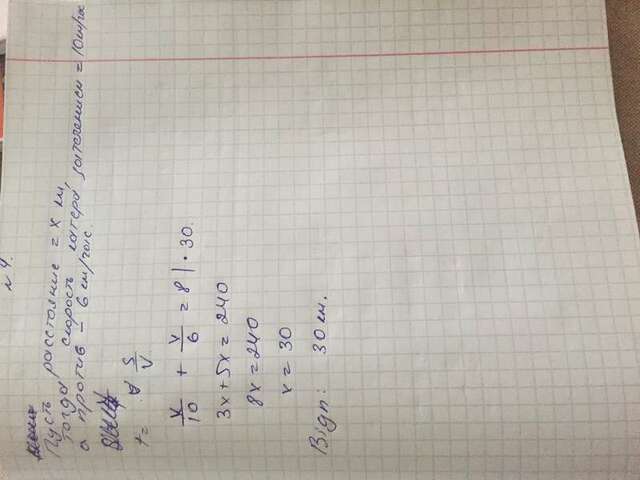 № 4.
Пусть расстояние = x км,
тогда скорость катера за течением = 10 км/час
а против – 6 км/час.
t = S/V
x/10 + x/6 = 8 | · 30.
3x + 5x = 240
8x = 240
x = 30
Відп: 30 км.